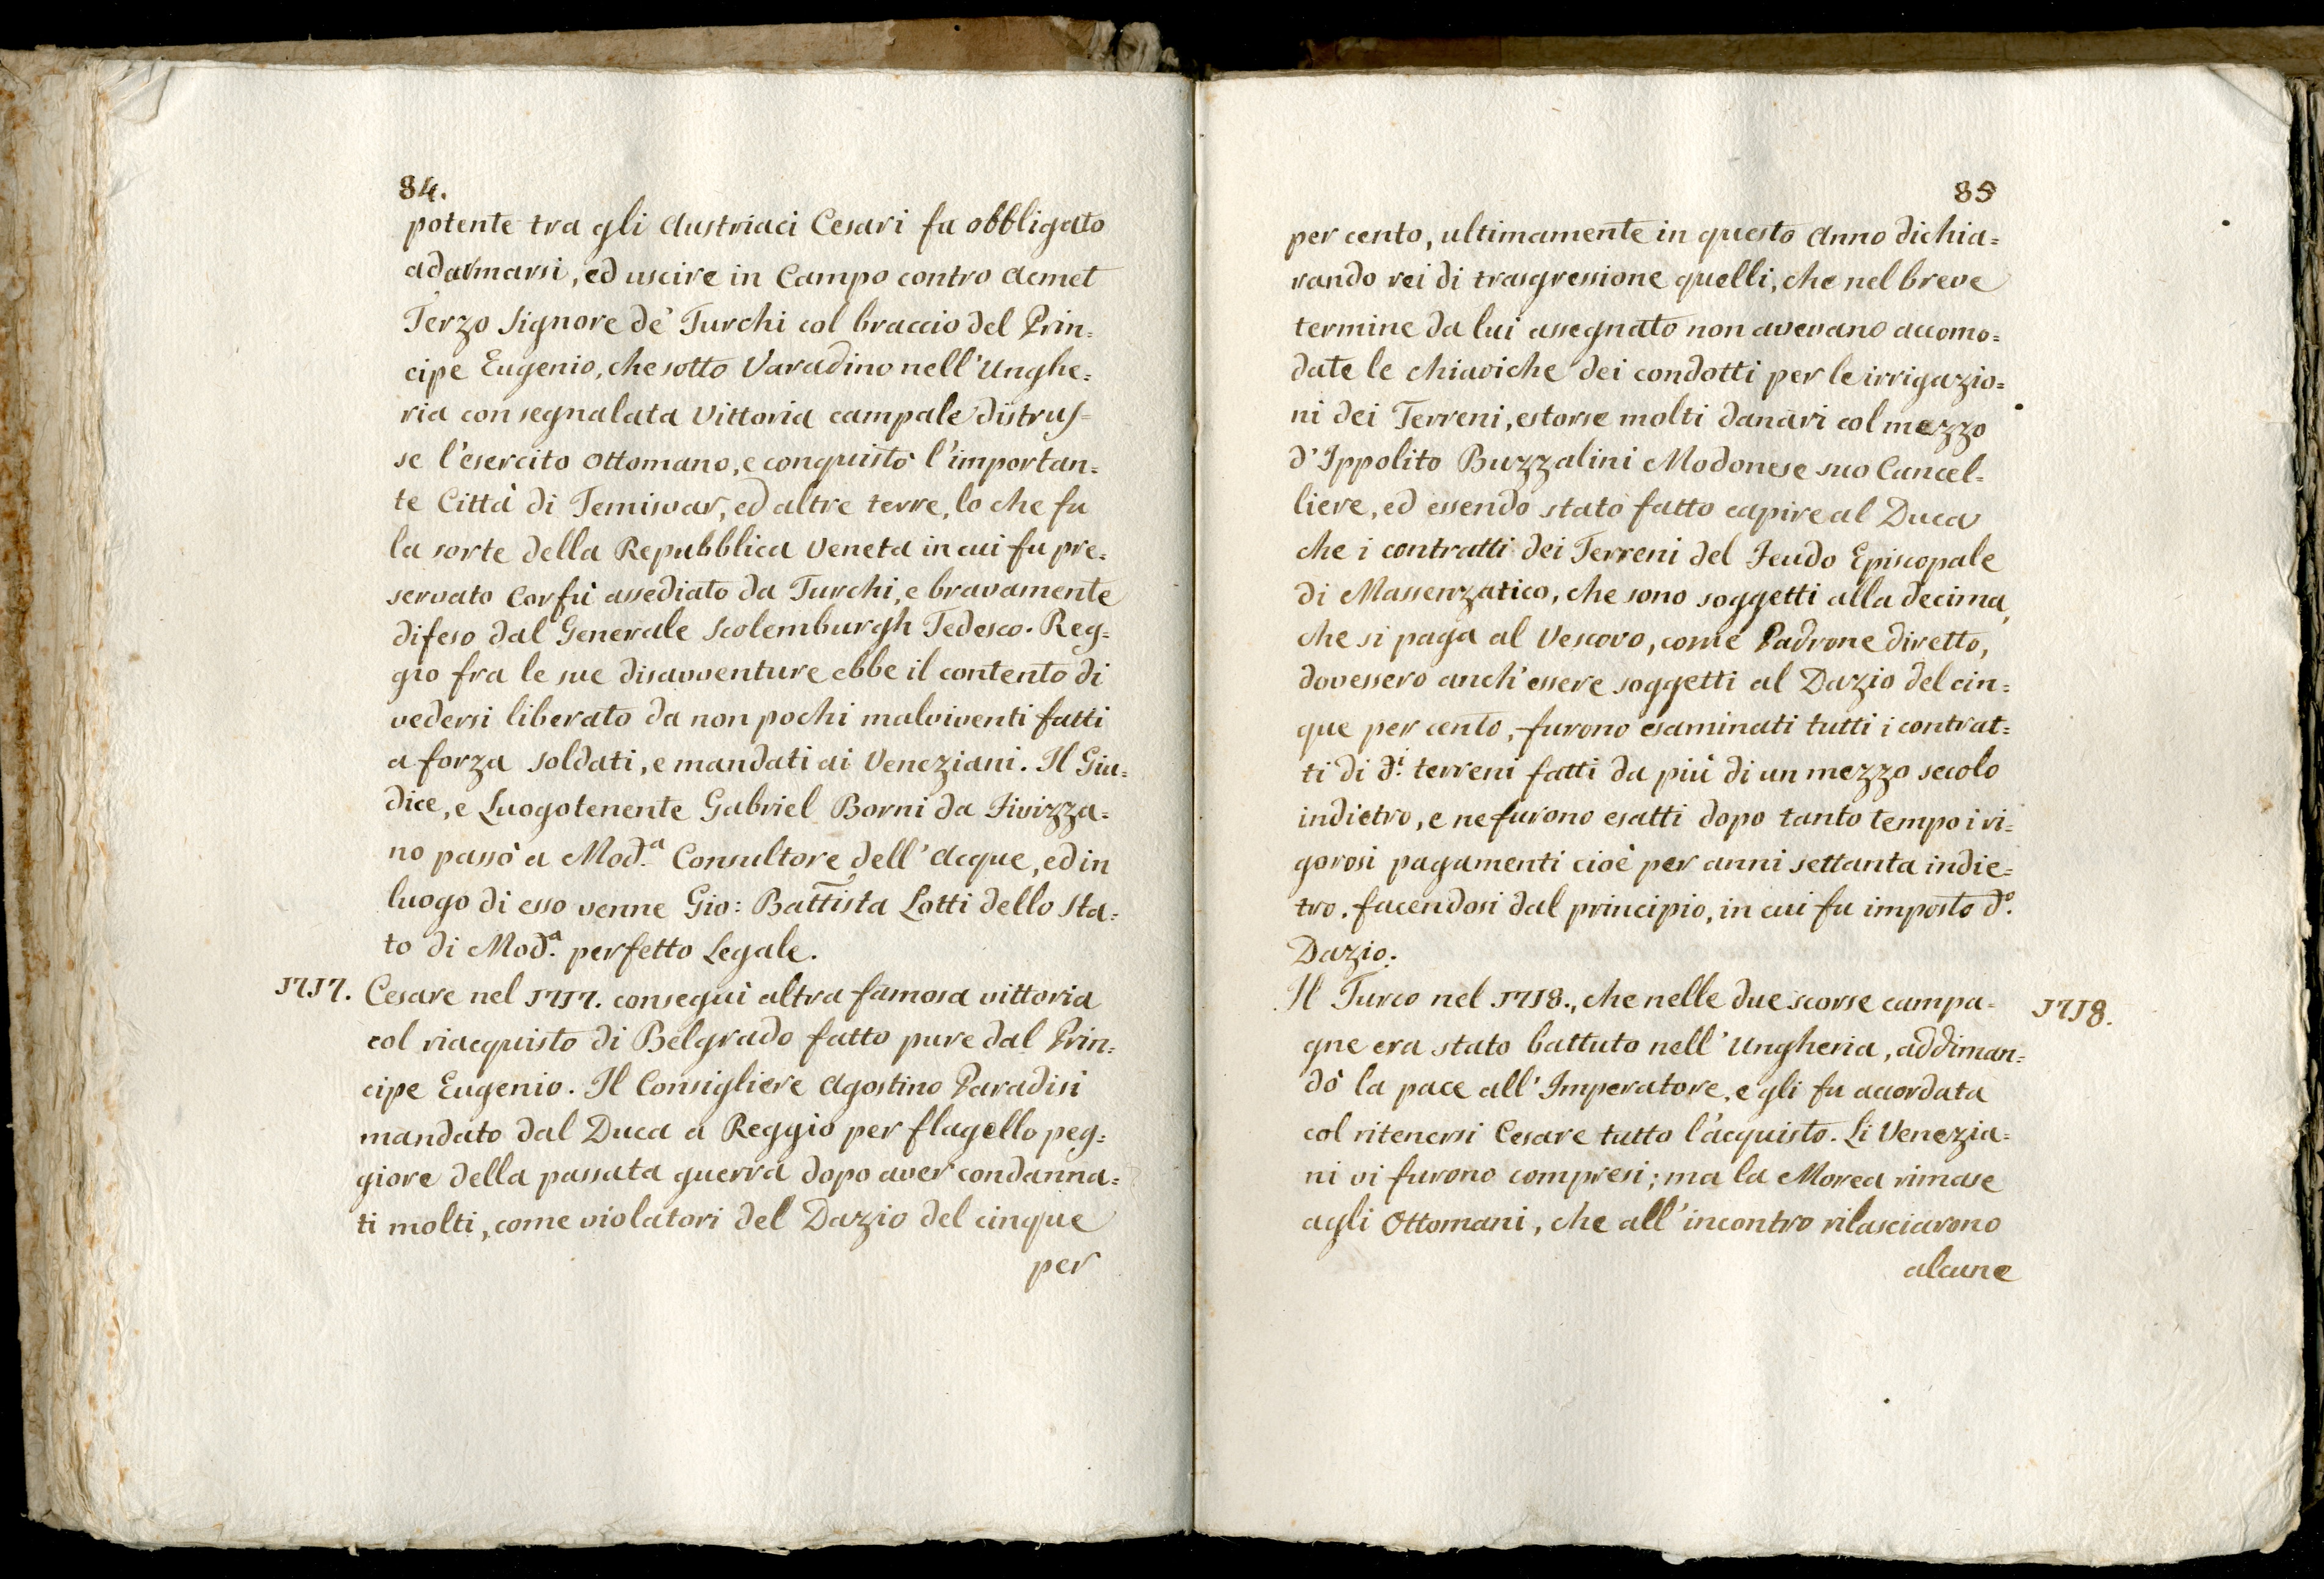 84.
potente tra gli Austriaci Cesari fu obbligato
ad armarsi, ed uscire in Campo contro Acmet
Terzo Signore de' Turchi col braccio del Prin=
cipe Eugenio, che sotto Varadino nell'Unghe=
ria con segnalata Vittoria campale distrus=
se l'esercito Ottomano, e conquistò l'importan=
te Città di Temiswar, ed altre terre, lo che fu
la sorte della Repubblica Veneta in cui fu pre=
servato Corfù assediato da Turchi, e bravamente
difeso dal Generale Scolemburgh Tedesco. Reg=
gio fra le sue disavventure ebbe il contento di
vedersi liberato da non pochi malviventi fatti
a forza soldati, e mandati ai Veneziani. Il Giu=
dice, e Luogotenente Gabriel Borni da Fivizza=
no passò a Mod.ª Consultore dell'Acque, ed in
luogo di esso venne Gio: Battista Lotti dello Sta=
to di Mod.ª perfetto Legale.
1717. Cesare nel 1717. conseguì altra famosa vittoria
col riacquisto di Belgrado fatto pure dal Prin=
cipe Eugenio. Il Consigliere Agostino Paradisi
mandato dal Duca a Reggio per flagello peg=
giore della passata guerra dopo aver condanna=
ti molti, come violatori del Dazio del cinque
per
85
per cento, ultimamente in questo Anno dichia=
rando rei di trasgressione quelli, che nel breve
termine da lui assegnato non avevano accomo=
date le chiaviche dei condotti per le irrigazio=
ni dei Terreni, estorse molti danari col mezzo
d'Ippolito Buzzalini Modonese suo Cancel=
liere, ed essendo stato fatto capire al Duca
che i contratti dei Terreni del Feudo Episcopale
di Massenzatico, che sono soggetti alla decima,
che si paga al Vescovo, come Padrone diretto,
dovessero anch'essere soggetti al Dazio del cin=
que per cento, furono esaminati tutti i contrat=
ti di d.i terreni fatti da più di un mezzo secolo
indietro, e ne furono esatti dopo tanto tempo i ri=
gorosi pagamenti cioè per anni settanta indie=
tro, facendosi dal principio, in cui fu imposto d.º
Dazio.
Il Turco nel 1718., che nelle due scorse campa= 1718.
gne era stato battuto nell'Ungheria, addiman=
dò la pace all'Imperatore, e gli fu accordata
col ritenersi Cesare tutto l'acquisto. Li Venezia=
ni vi furono compresi; ma la Morea rimase
agli Ottomani, che all'incontro rilasciarono
alcune